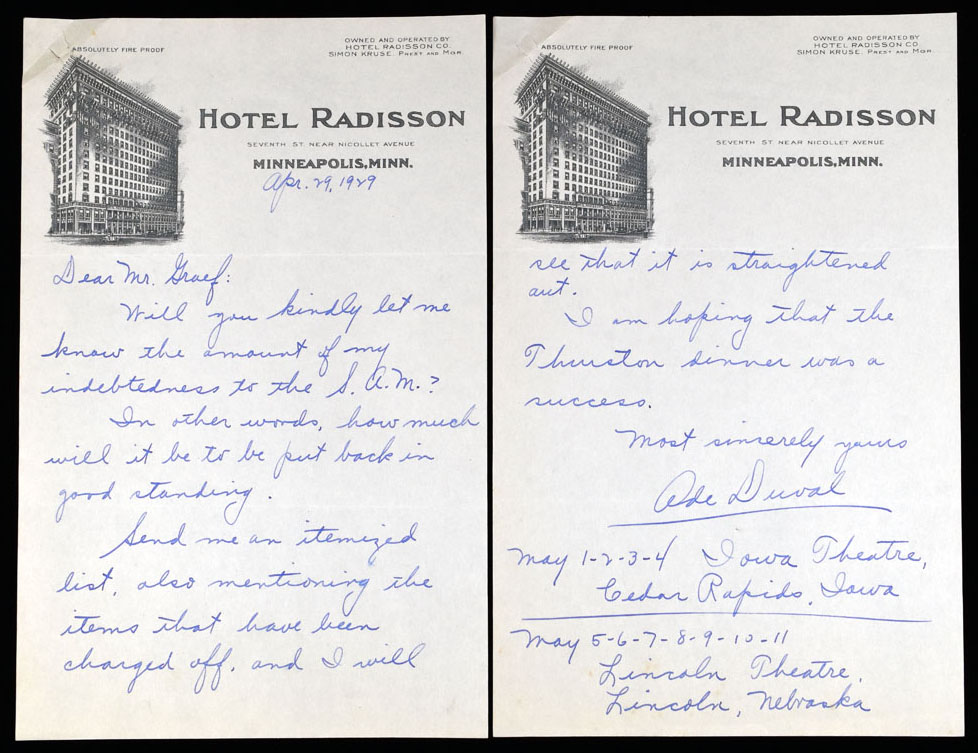 ABSOLUTELY FIRE PROOF
OWNED AND OPERATED BY
HOTEL RADISSON CO.
SIMON KRUSE, PREST AND MGR.
HOTEL RADISSON
SEVENTH ST. NEAR NICOLLET AVENUE
MINNEAPOLIS, MINN.
Apr. 29, 1929
Dear Mr. Graef:
Will you kindly let me
know the amount of my
indebtedness to the S.A.M.?
In other words, how much
will it be to be put back in
good standing.
Send me an itemized
list, also mentioning the
items that have been
charged off, and I will
ABSOLUTELY FIRE PROOF
OWNED AND OPERATED BY
HOTEL RADISSON CO.
SIMON KRUSE, PREST AND MGR.
HOTEL RADISSON
SEVENTH ST. NEAR NICOLLET AVENUE
MINNEAPOLIS, MINN.
see that it is straightened
out.
I am hoping that the
Thurston dinner was a
success.
Most sincerely yours
Ade Duval
May 1-2-3-4 Iowa Theatre,
Cedar Rapids, Iowa
May 5-6-7-8-9-10-11
Lincoln Theatre,
Lincoln, Nebraska